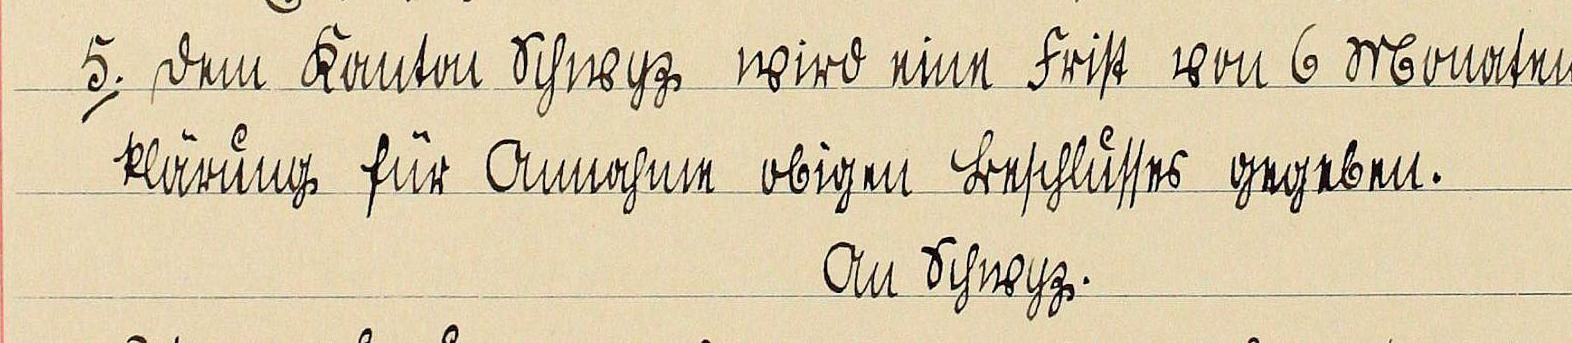 5. Dem Kanton Schwyz wird eine Frist von 6 Monaten
klärung für Annahme obigen Beschlusses gegeben.
An Schwyz.